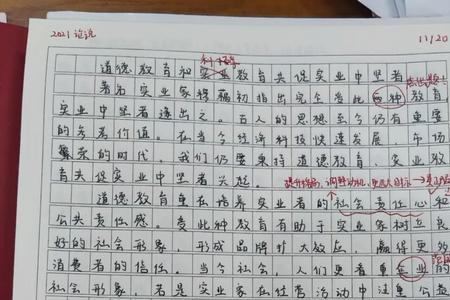 2021 论说
11/20
科技
道德教育和实业教育共促实业中坚者
著名实业家穆藕初指出完全受此两种教育,
实业中坚者遂出之。古人的思想至今仍有重要
的参考价值。在当今经济科技快速发展、市场
繁荣的时代,我们仍要坚持道德教育、实业教
育共促实业中坚者兴起。
道德教育重在培养实业者的社会责任心和
公共责任感。受此种教育有助于实业家树立良
好的社会形象,形成品牌扩大效应,赢得更多
消费者的信任。当今社会,人们更看重企业的
社会形象,若是实业家在经营活动中注重公益